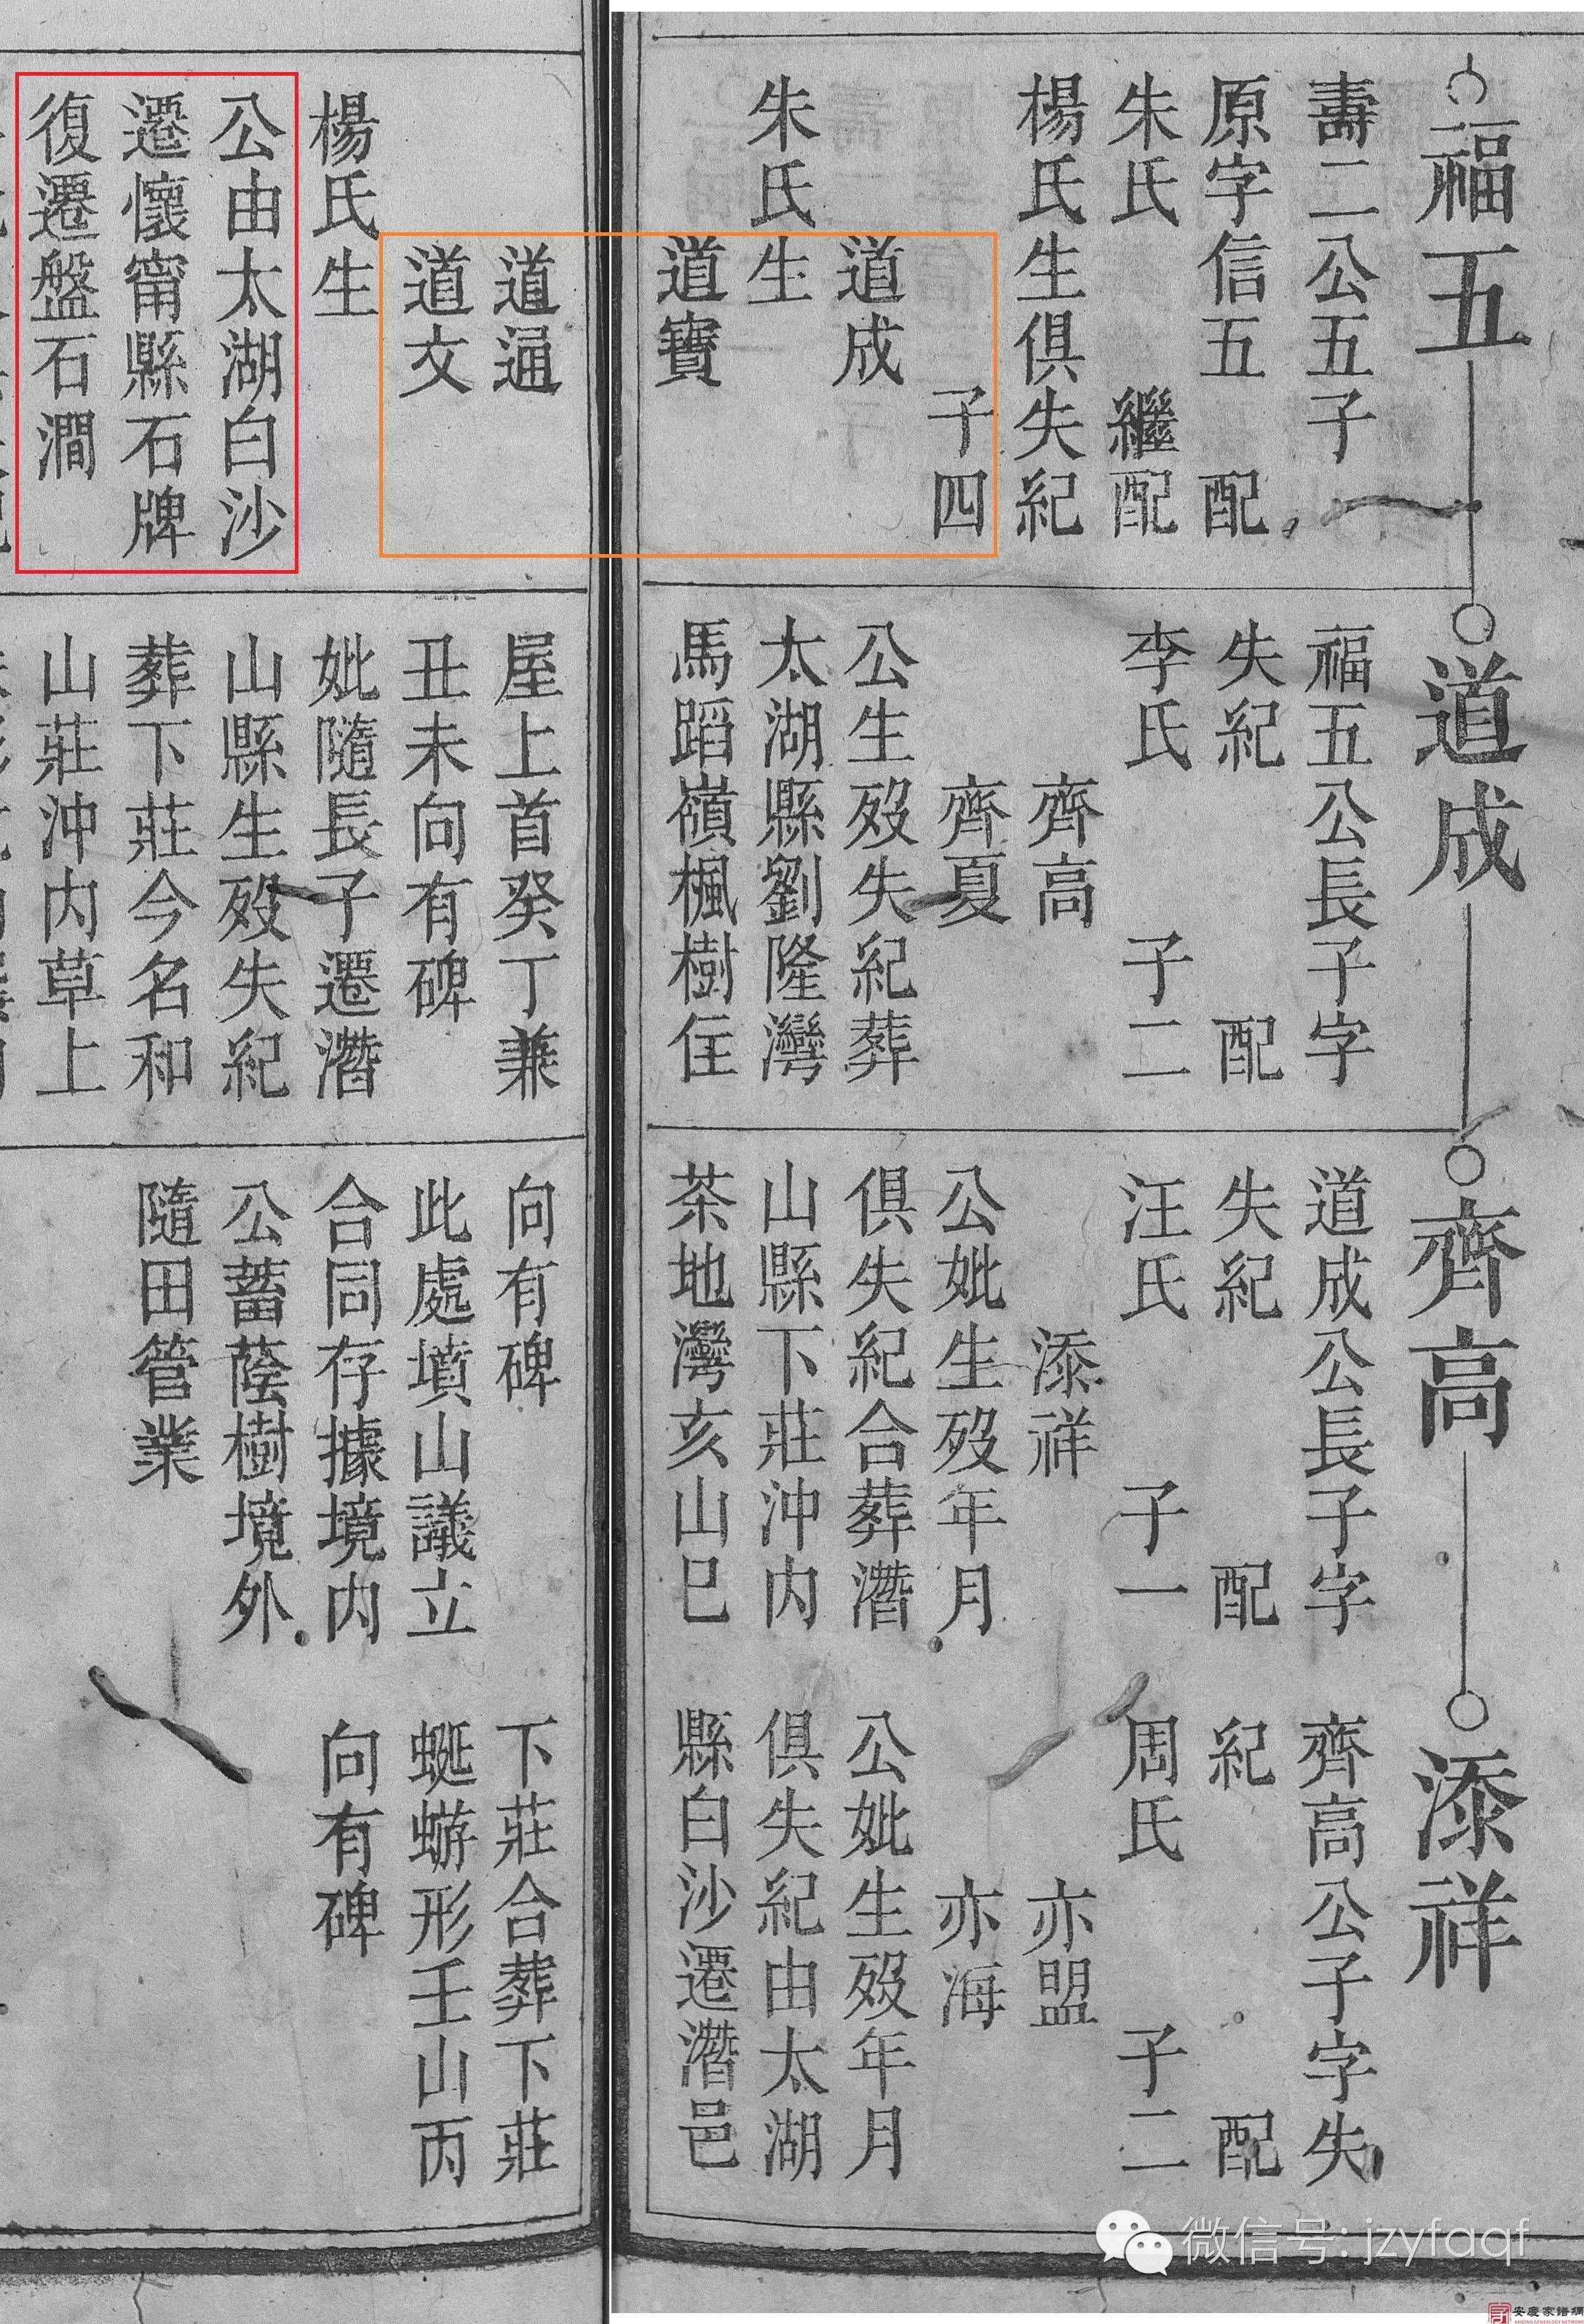 福五
壽二公五子
原字信五 配
朱氏 繼配
楊氏生俱失紀
子四
道成
朱氏生
道寶
道通
道文
楊氏生
公由太湖白沙
遷懷甯縣石牌
復遷盤石澗
道成
福五公長子字
失紀 配
李氏 子二
齊高
齊夏
公生殁失紀葬
太湖縣劉隆灣
馬蹈嶺楓樹住
屋上首癸丁兼
丑未向有碑
妣隨長子遷潛
山縣生殁失紀
葬下莊今名和
山莊沖内草上
齊高
道成公長子字
失紀 配
汪氏 子一
添祥
公妣生殁年月
俱失紀合葬潛
山縣下莊沖内
茶地灣亥山巳
向有碑
此處墳山議立
合同存據境内
公蓄蔭樹境外
隨田管業
添祥
齊高公子字失
紀 配
周氏 子二
亦盟
亦海
公妣生殁年月
俱失紀由太湖
縣白沙遷潛邑
下莊合葬下莊
蜒蝣形壬山丙
向有碑
微信号: jzyfaqf
安慶家譜網